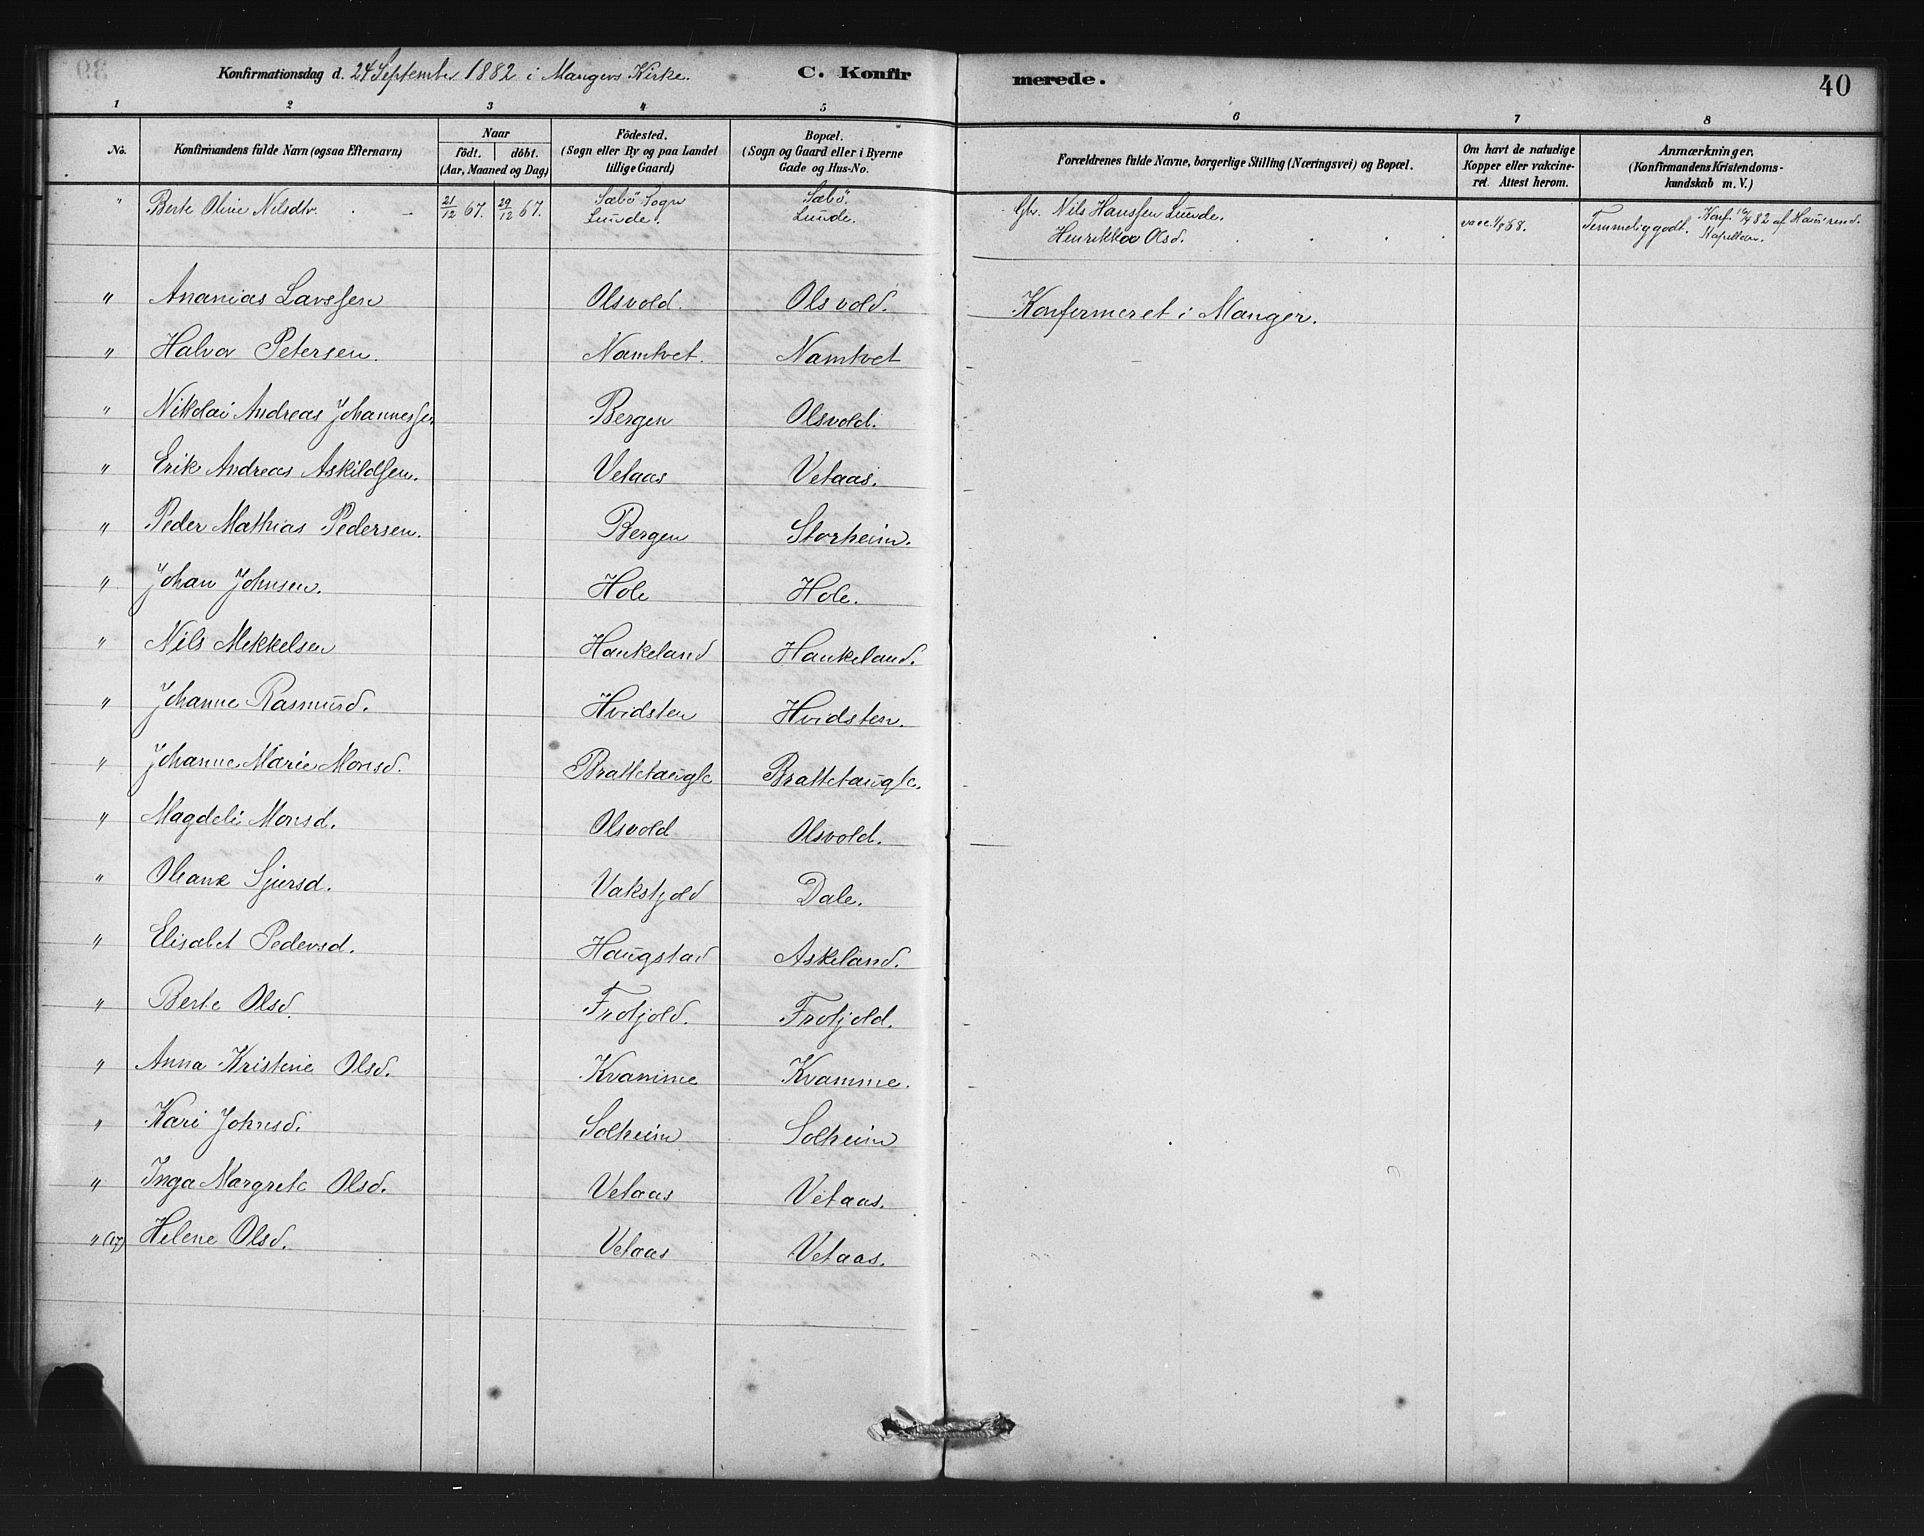 Konfirmationsdag d. 24 September 1882 i Mangers Kirke. C. Konfirmerede. 40
1 2 3 4 5 6 7 8
No. Konfirmandens fulde Navn (ogsaa Efternavn) Naar födt. döbt. (Aar, Maaned og Dag) Födested. (Sogn eller By og paa Landet tillige Gaard) Bopæl. (Sogn og Gaard eller i Byerne Gade og Hus-No. Forældrenes fulde Navne, borgerlige Stilling (Næringsvei) og Bopæl. Om havt de naturlige Kopper eller vakcineret. Attest herom. Anmærkninger. (Konfirmandens Kristendomskundskab m. V.)
" Berte Oline Nilsdtr. 21/12 67. 29/12 67. Sæbö Sogn Lunde. Sæbö. Lunde. Gbr. Nils Hanssen Lunde. Henrikka Olsd. Temmelig godt. Konf.
" Ananias Larssen Olsvold. Olsvold. Konfermeret i Manger.
" Halvor Petersen. Namtvet. Namtvet
" Nikolai Andreas Johannessen Bergen Olsvold.
" Erik Andreas Askildsen. Vetaas Vetaas.
" Peder Mathias Pedersen. Bergen Storheim.
" Johan Johnsen. Hole Hole.
" Nils Mikkelsen Haukeland Haukeland.
" Johanne Rasmusd. Hvidsten Hvidsten.
" Johanne Marie Monsd. Brattetaugle Brattetaugle.
" Magdeli Monsd. Olsvold Olsvold.
" Oleane Sjursd. Vaksfjold Dale.
" Elisabet Pedersd. Haugstad Askeland.
" Berte Olsd. Frofjold. Frofjold.
" Anna Kristine Olsd. Kvamme Kvamme.
" Kari Johnsd. Solheim Solheim
" Inga Margrete Olsd. Vetaas Vetaas.
" (17) Helene Olsd. Vetaas Vetaas.